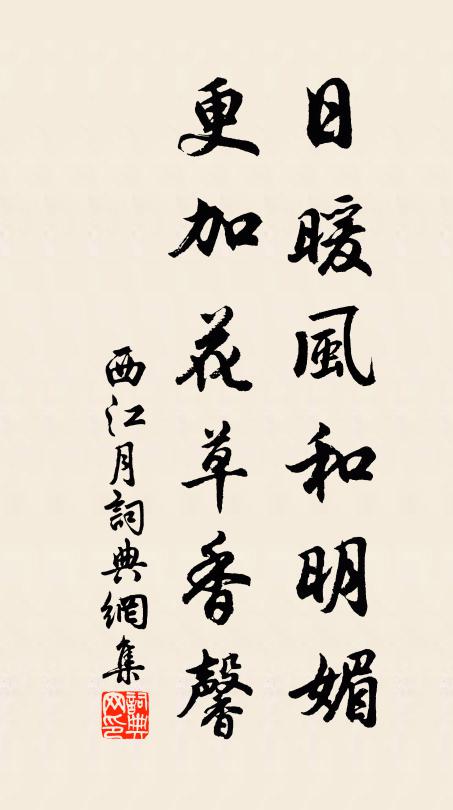 日暖風和明媚
更加花草香馨
西江月詞典網集
詞典网印